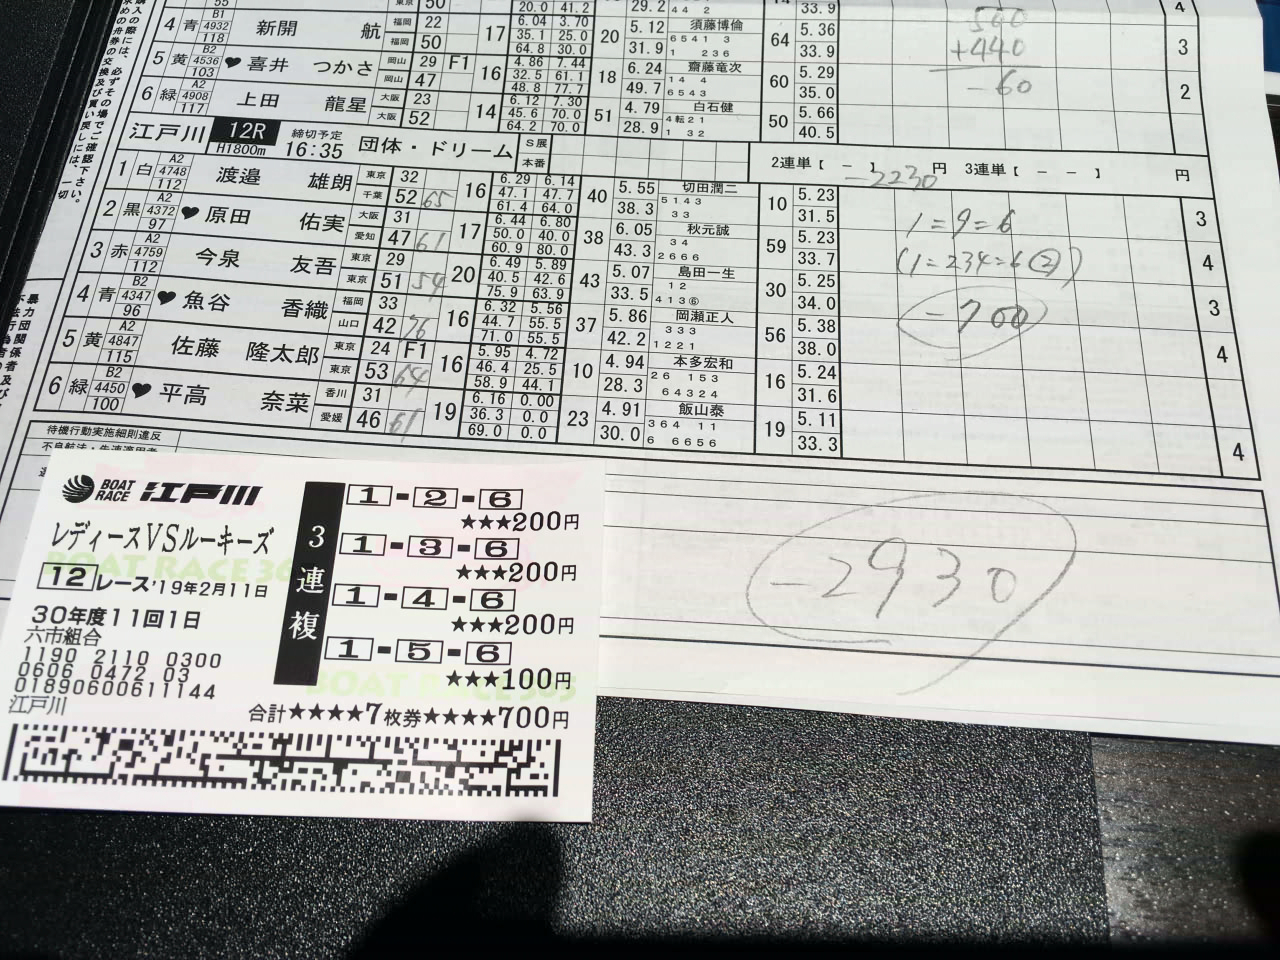 4 青 B1 4932 118 新開 航 福岡 22 福岡 50 17 6.04 3.70 35.1 25.0 64.8 30.0 20 5.12 31.9 須藤博倫 6541 3 1 236 64 5.36 33.9 3
5 黄 B2 4536 103 ♥喜井 つかさ 岡山 29 F1 岡山 47 16 4.86 7.44 32.5 61.1 48.8 77.7 18 6.24 49.7 齋藤竜次 14 4 6543 60 5.29 35.0 2
6 緑 A2 4908 117 上田 龍星 大阪 23 大阪 52 14 6.12 7.30 45.6 70.0 64.2 70.0 51 4.79 28.9 白石健 4転21 1 32 50 5.66 40.5
+440
-60
江戸川 12R H1800m 締切予定 16:35 団体・ドリーム S展 本番 2連単【 − 】 円 3連単【 − − 】 円
-2230
1 白 A2 4748 112 渡邉 雄朗 東京 32 千葉 52 65 16 6.29 6.14 47.1 47.7 61.4 64.0 40 5.55 38.3 切田潤二 5143 33 10 5.23 31.5 3
2 黒 A2 4372 97 ♥原田 佑実 大阪 31 愛知 47 61 17 6.44 6.80 50.0 40.0 60.9 80.0 38 6.05 43.3 秋元誠 34 2666 59 5.23 33.7 4
3 赤 A2 4759 112 今泉 友吾 東京 29 東京 51 54 20 6.49 5.89 40.5 42.6 75.9 63.9 43 5.07 33.5 島田一生 12 413⑥ 30 5.25 34.0 3
4 青 B2 4347 96 ♥魚谷 香織 福岡 33 山口 42 76 16 6.32 5.56 44.7 55.5 71.0 55.5 37 5.86 42.2 岡瀬正人 333 1221 56 5.38 38.0 4
5 黄 A2 4847 115 佐藤 隆太郎 東京 24 F1 東京 53 64 16 5.95 4.72 46.4 25.5 58.9 44.1 10 4.94 28.3 本多宏和 26 153 64324 16 5.24 31.6
6 緑 B2 4450 100 ♥平高 奈菜 香川 31 愛媛 46 61 19 6.16 0.00 36.3 0.0 69.0 0.0 23 4.91 30.0 飯山泰 364 11 6 6656 19 5.11 33.3 4
1=9=6
(1=234=6②)
-700
待機行動実施細則違反
-2930
BOAT RACE 江戸川
レディースVSルーキーズ
12レース '19年2月11日
30年度11回1日
六市組合
1190 2110 0300
0606 0472 03
01890600611144
江戸川
3連複
1-2-6
★★★200円
1-3-6
★★★200円
1-4-6
★★★200円
1-5-6
★★★100円
合計★★★★7枚券★★★★700円